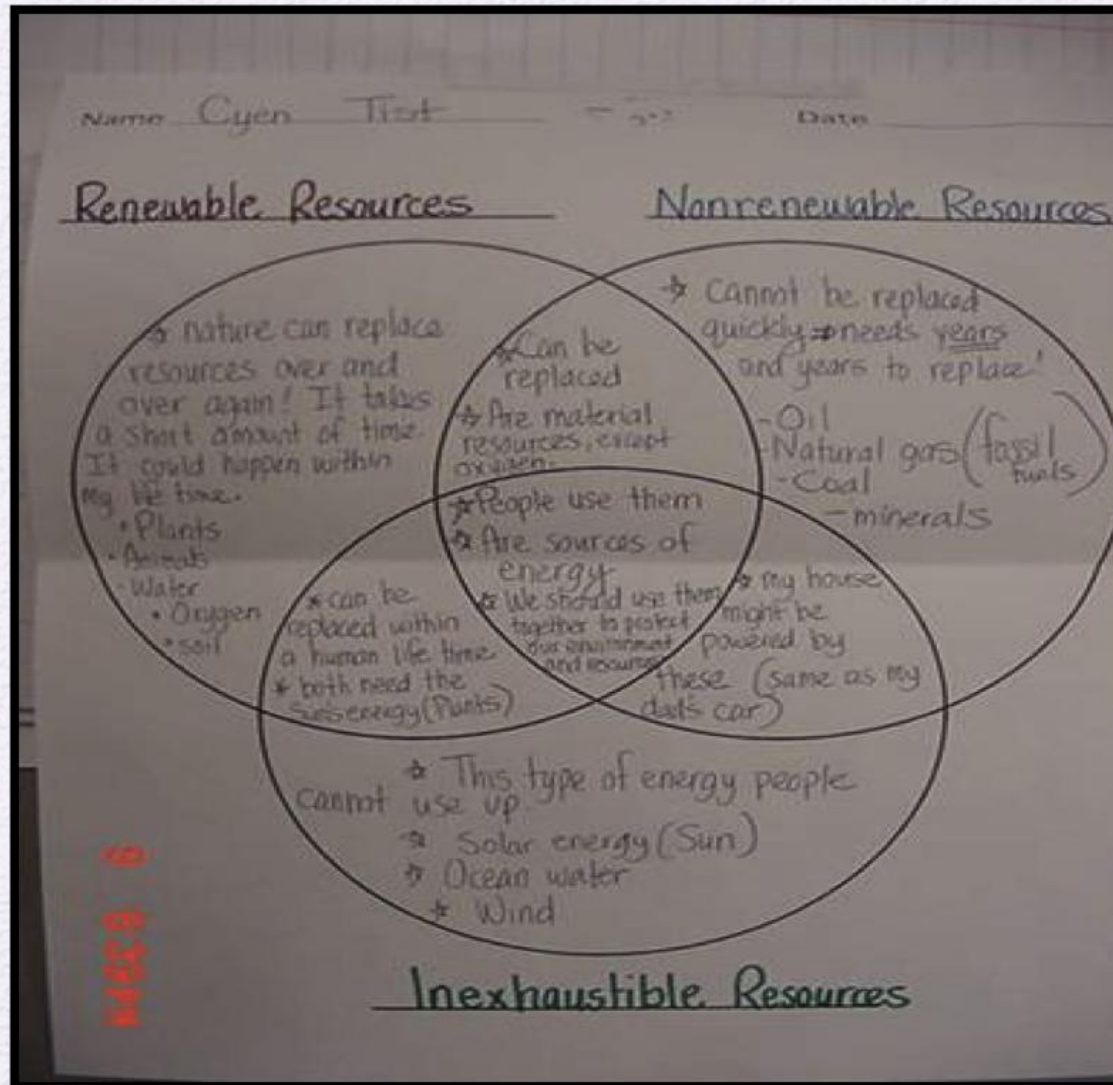 Name Cyen Tist Date
Renewable Resources
Nonrenewable Resources
☆ nature can replace
resources over and
over again! It takes
a short amount of time.
It could happen within
my life time.
• Plants
• Animals
- Water
• Oxygen
• soil
☆ Can be
replaced
☆ Are material
resources, except
oxygen.
☆ cannot be replaced
quickly ⇒ needs years
and years to replace!
- Oil
- Natural gas (fossil
fuels)
- Coal
- minerals
☆ People use them
☆ Are sources of
energy
☆ We should use them
together to protect
our environment
and resources
* can be
replaced within
a human life time
* both need the
sun's energy (Plants)
☆ my house
might be
powered by
these (same as my
dad's car)
☆ This type of energy people
cannot use up
☆ Solar energy (Sun)
☆ Ocean water
☆ Wind
Inexhaustible Resources